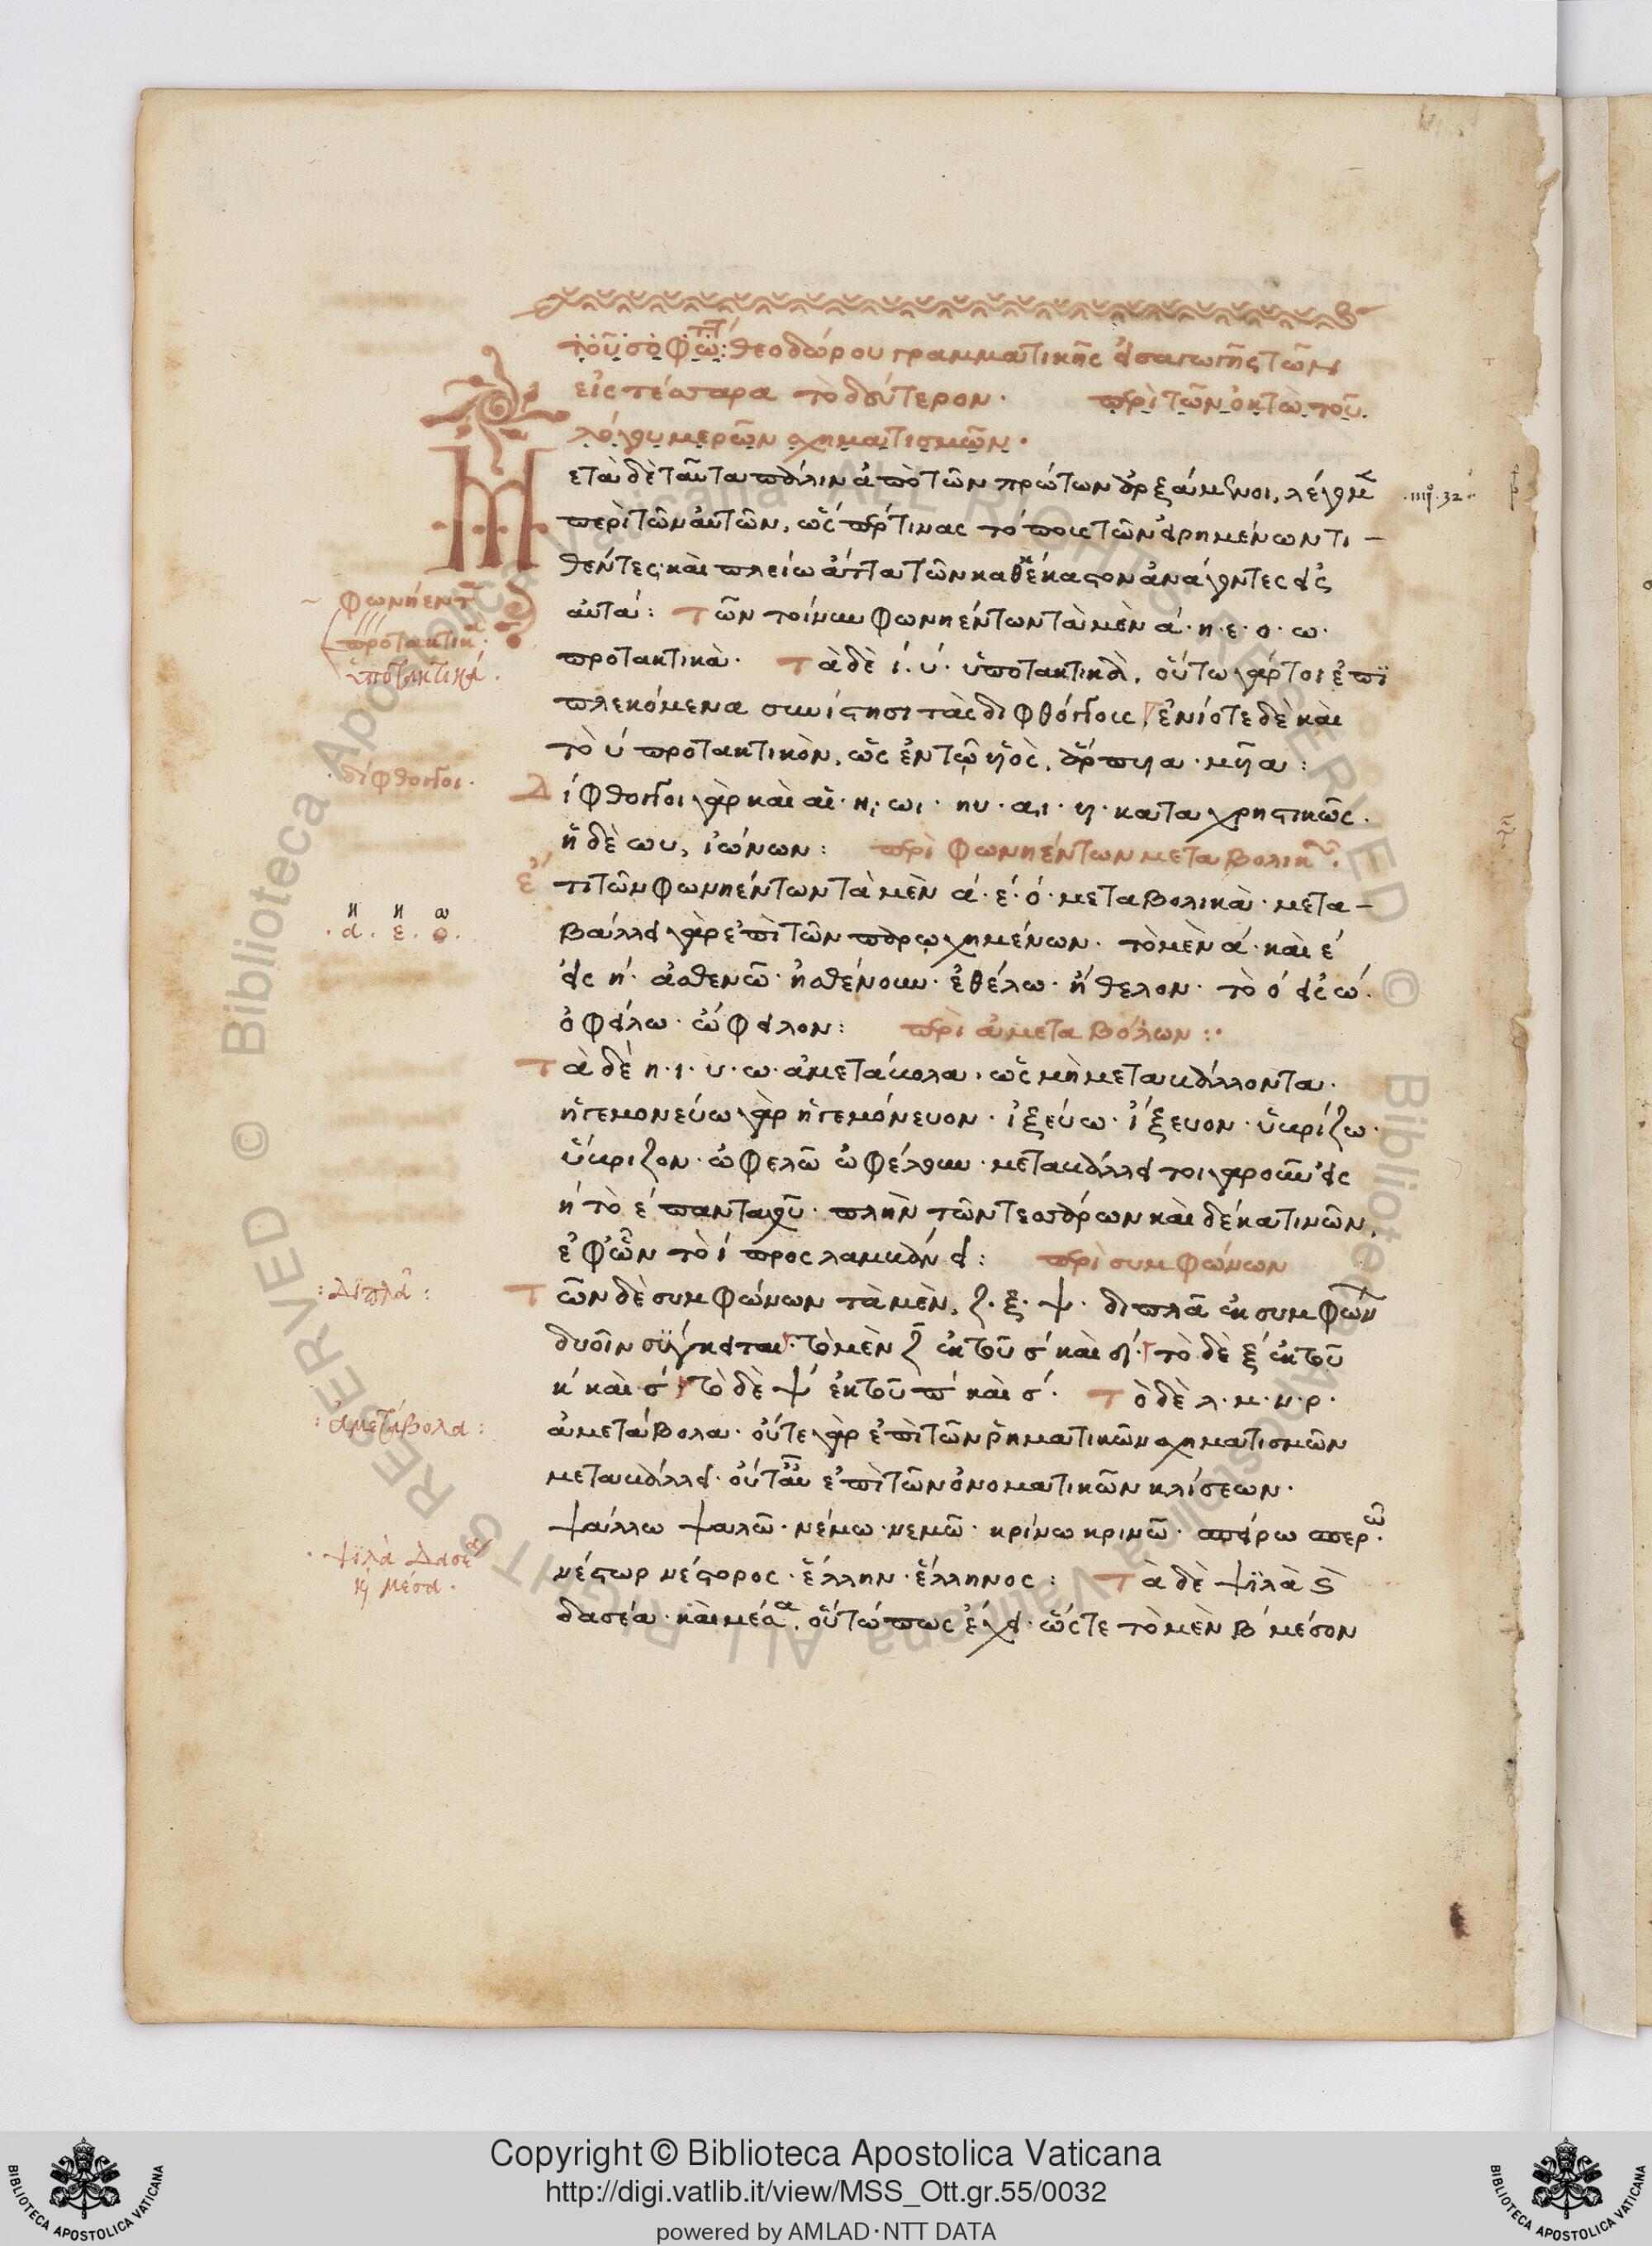 τοῦ σοφωτά: θεοδώρου γραμματικῆς εἰσαγωγῆς τῶν
εἰς τέσσαρα τὸ δεύτερον· περὶ τῶν ὀκτὼ τοῦ
λόγου μερῶν σχηματισμῶν·
Μετὰ δὲ ταῦτα πάλιν ἀπὸ τῶν πρώτων ἀρξάμενοι, λέγωμεν
.iiij. 32.
περὶ τῶν αὐτῶν, ὥσπερ τινας τόπους τῶν εἰρημένων τι-
θέντες· καὶ πλείω ἄττα τῶν καθ' ἕκαστον ἀνάγοντες εἰς
αὐτά: Τῶν τοίνυν φωνηέντων τὰ μὲν ά· η· ε· ο· ω·
προτακτικὰ· Τὰ δὲ ί· ύ· ὑποτακτικὰ, οὕτω γάρ τοι ἐπι
πλεκόμενα συνίστησι τὰς διφθόγγους, ἐνίοτε δὲ καὶ
τὸ ύ προτακτικὸν, ὡς ἐν τῷ υἱὸς, ἅρπυια· μυῖα:
Δίφθογγοι γὰρ καὶ αἱ· ηι· ωι· ηυ· αι· υι· καταχρηστικῶς·
ἡ δὲ ωυ, ἰώνων: περὶ φωνηέντων μεταβολικῶν·
ἔτι τῶν φωνηέντων τὰ μὲν ά· έ· ό· μεταβολικὰ· μετα-
βάλλει γὰρ ἐπὶ τῶν παρῳχημένων· τὸ μὲν ά· καὶ έ
εἰς ή· ἀσθενῶ· ἠσθένουν· ἐθέλω· ἤθελον· τὸ ό εἰς ώ·
ὀφείλω· ὤφειλον: περὶ ἀμεταβόλων:·
Τὰ δὲ η· ι· υ· ω· ἀμετάβολα, ὡς μὴ μεταβάλλοντα·
ἡγεμονεύω γὰρ ἡγεμόνευον· ἰξεύω· ἴξευον· ὑβρίζω·
ὕβριζον· ὠφελῶ ὠφέλουν· μεταβάλλει τοιγαροῦν εἰς
ή τὸ έ πανταχοῦ· πλὴν τῶν τεσσάρων καὶ δέκα τινῶν,
ἐφ' ὧν τὸ ί προσλαμβάνει: περὶ συμφώνων
Τῶν δὲ συμφώνων τὰ μὲν, ζ· ξ· ψ· διπλᾶ ἐκ συμφών
δυοῖν σύγκειται· τὸ μὲν ζ ἐκ τοῦ σ' καὶ δ'· τὸ δὲ ξ ἐκ τοῦ
κ' καὶ σ'· τὸ δὲ ψ' ἐκ τοῦ π' καὶ σ'· Τὸ δὲ λ· μ· ν· ρ·
ἀμετάβολα· οὔτε γὰρ ἐπὶ τῶν ῥηματικῶν σχηματισμῶν
μεταβάλλει· οὔτ' αὖ ἐπὶ τῶν ὀνοματικῶν κλίσεων·
ψάλλω ψαλῶ· νέμω· νεμῶ· κρίνω κρινῶ· σπείρω σπερῶ·
νέστωρ νέστορος· ἕλλην· ἕλληνος: Τὰ δὲ ψιλὰ καὶ
δασέα· καὶ μέσα, οὕτώ πως ἔχει· ὥστε τὸ μὲν β μέσον
φωνήεντ
προτακτικ
ὑποτακτικά·
δίφθογγοι·
η η ω
·α· ε· ο·
:διπλᾶ:
:ἀμετάβολα:
·ψιλὰ δασέα
καὶ μέσα·
Copyright © Biblioteca Apostolica Vaticana
http://digi.vatlib.it/view/MSS_Ott.gr.55/0032
powered by AMLAD·NTT DATA
BIBLIOTECA APOSTOLICA VATICANA
BIBLIOTECA APOSTOLICA VATICANA